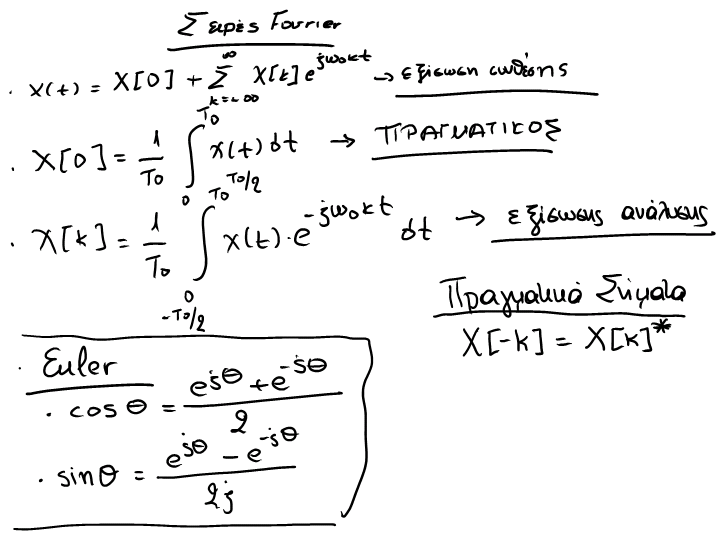 Σειρές Fourier
. x(t) = X[0] + ∞ Σ k=-∞ X[k] e^{jω₀kt} → εξίσωση σύνθεσης
. X[0] = 1/T₀ ∫₀^{T₀} x(t) dt → ΠΡΑΓΜΑΤΙΚΟΣ
. X[k] = 1/T₀ ∫_{0, -T₀/2}^{T₀, T₀/2} x(t)·e^{-jω₀kt} dt → εξίσωσης ανάλυσης
Πραγματικά Σήματα
X[-k] = X[k]*
. Euler
. cosθ = (e^{jθ} + e^{-jθ})/2
. sinθ = (e^{jθ} - e^{-jθ})/2j